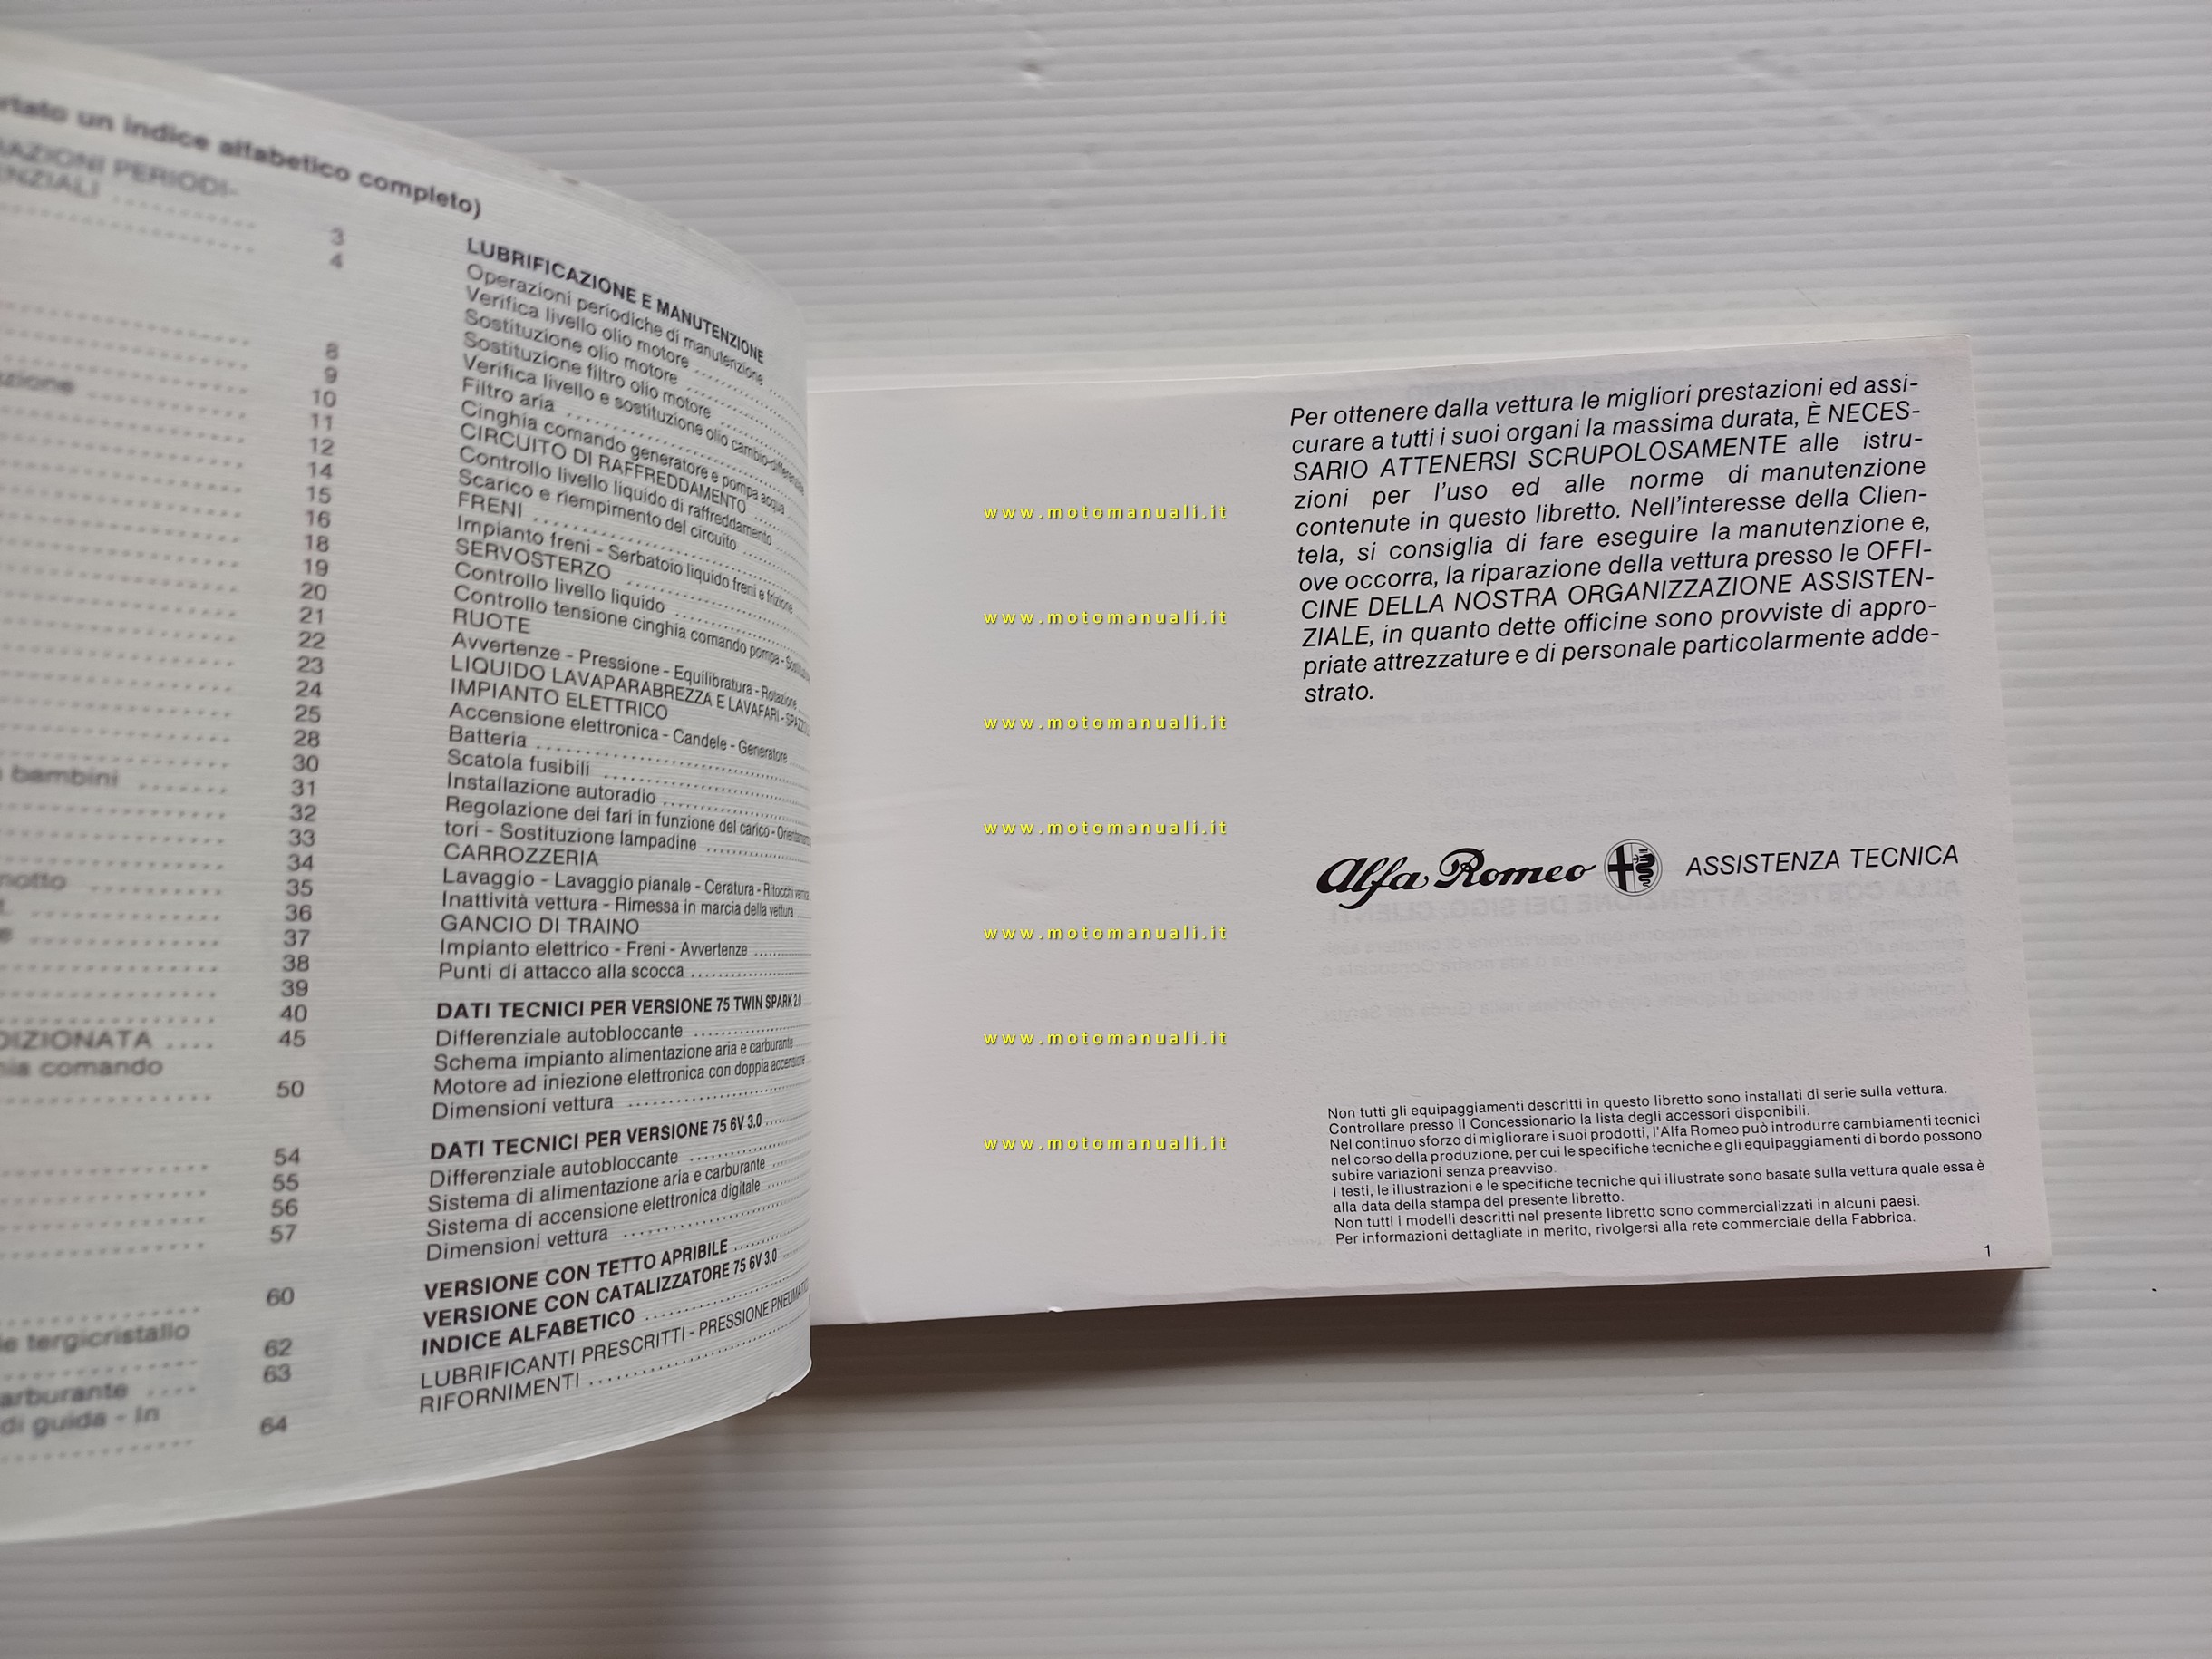 un indice alfabetico completo)
3
4
8
9
10
11
12
14
15
16
18
19
20
21
22
23
24
25
28
30
bambini
31
32
33
34
35
36
37
38
39
40
45
comando
50
54
55
56
57
60
tergicristallo
62
63
di guida - In
64
LUBRIFICAZIONE E MANUTENZIONE
Operazioni periodiche di manutenzione
Verifica livello olio motore
Sostituzione olio motore
Sostituzione filtro olio motore
Verifica livello e sostituzione olio cambio-differenziale
Filtro aria
Cinghia comando generatore e pompa acqua
CIRCUITO DI RAFFREDDAMENTO
Controllo livello liquido di raffreddamento
Scarico e riempimento del circuito
FRENI
Impianto freni - Serbatoio liquido freni e frizione
SERVOSTERZO
Controllo livello liquido
Controllo tensione cinghia comando pompa -
RUOTE
Avvertenze - Pressione - Equilibratura - Rotazione
LIQUIDO LAVAPARABREZZA E LAVAFARI -
IMPIANTO ELETTRICO
Accensione elettronica - Candele - Generatore
Batteria
Scatola fusibili
Installazione autoradio
Regolazione dei fari in funzione del carico -
tori - Sostituzione lampadine
CARROZZERIA
Lavaggio - Lavaggio pianale - Ceratura - Ritocchi
Inattività vettura - Rimessa in marcia della vettura
GANCIO DI TRAINO
Impianto elettrico - Freni - Avvertenze
Punti di attacco alla scocca
DATI TECNICI PER VERSIONE 75 TWIN SPARK 2.0
Differenziale autobloccante
Schema impianto alimentazione aria e carburante
Motore ad iniezione elettronica con doppia accensione
Dimensioni vettura
DATI TECNICI PER VERSIONE 75 6V 3.0
Differenziale autobloccante
Sistema di alimentazione aria e carburante
Sistema di accensione elettronica digitale
Dimensioni vettura
VERSIONE CON TETTO APRIBILE
VERSIONE CON CATALIZZATORE 75 6V 3.0
INDICE ALFABETICO
LUBRIFICANTI PRESCRITTI - PRESSIONE
RIFORNIMENTI
www.motomanuali.it
www.motomanuali.it
www.motomanuali.it
www.motomanuali.it
www.motomanuali.it
www.motomanuali.it
www.motomanuali.it
Per ottenere dalla vettura le migliori prestazioni ed assi-
curare a tutti i suoi organi la massima durata, È NECES-
SARIO ATTENERSI SCRUPOLOSAMENTE alle istru-
zioni per l'uso ed alle norme di manutenzione
contenute in questo libretto. Nell'interesse della Clien-
tela, si consiglia di fare eseguire la manutenzione e,
ove occorra, la riparazione della vettura presso le OFFI-
CINE DELLA NOSTRA ORGANIZZAZIONE ASSISTEN-
ZIALE, in quanto dette officine sono provviste di appro-
priate attrezzature e di personale particolarmente adde-
strato.
Alfa Romeo ASSISTENZA TECNICA
Non tutti gli equipaggiamenti descritti in questo libretto sono installati di serie sulla vettura.
Controllare presso il Concessionario la lista degli accessori disponibili.
Nel continuo sforzo di migliorare i suoi prodotti, l'Alfa Romeo può introdurre cambiamenti tecnici
nel corso della produzione, per cui le specifiche tecniche e gli equipaggiamenti di bordo possono
subire variazioni senza preavviso.
I testi, le illustrazioni e le specifiche tecniche qui illustrate sono basate sulla vettura quale essa è
alla data della stampa del presente libretto.
Non tutti i modelli descritti nel presente libretto sono commercializzati in alcuni paesi.
Per informazioni dettagliate in merito, rivolgersi alla rete commerciale della Fabbrica.
1